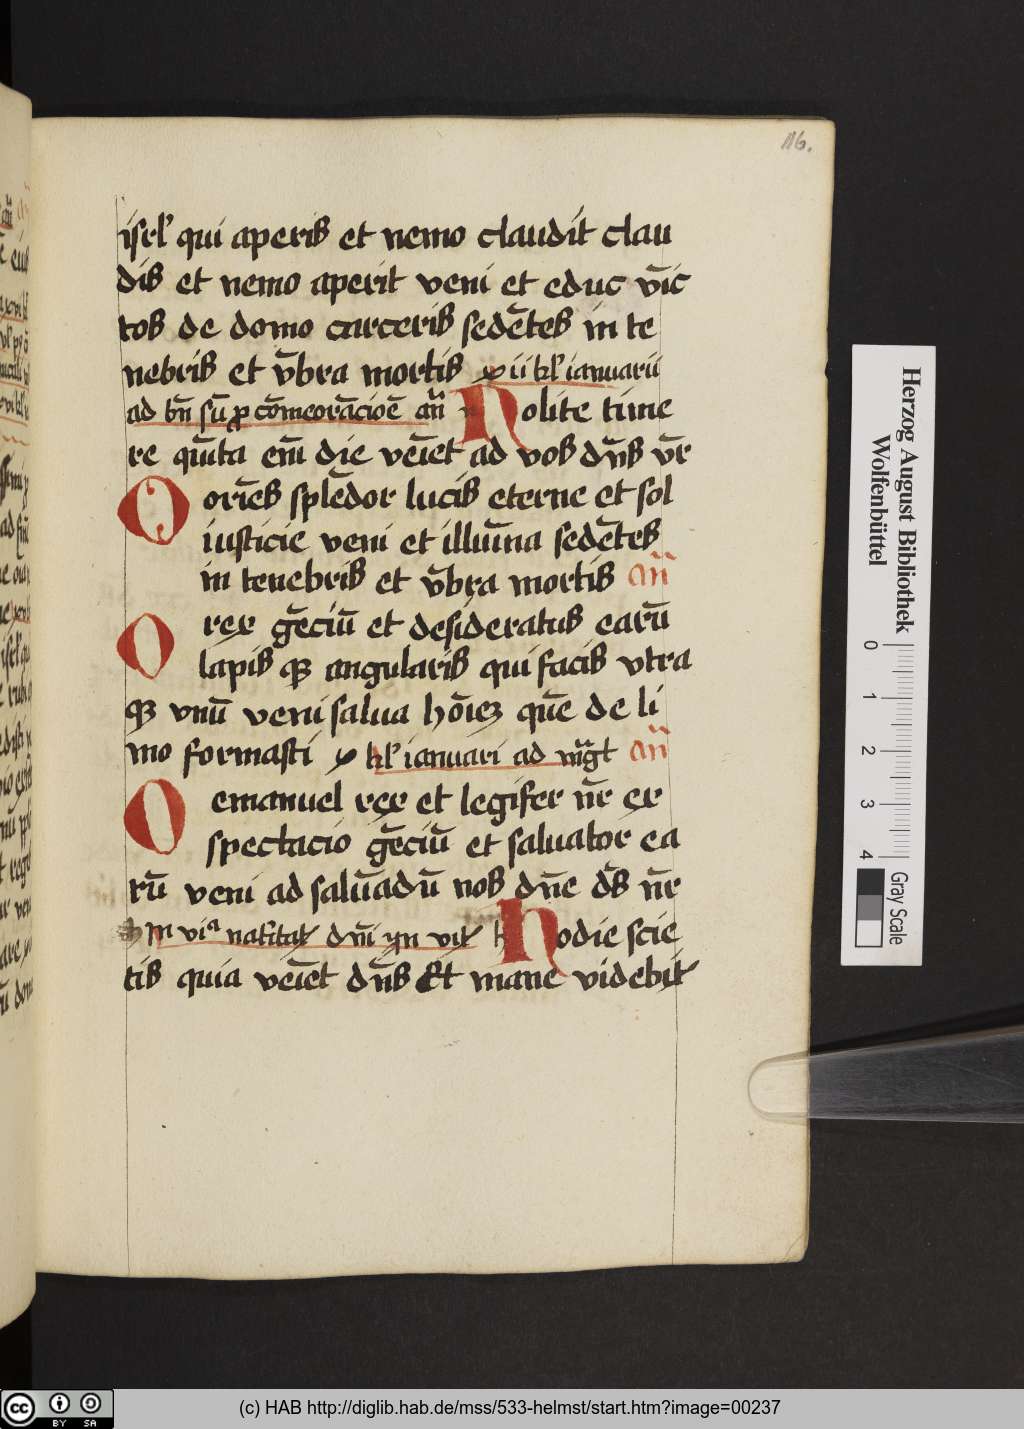 116.
isrl' qui aperis et nemo claudit clau
dis et nemo aperit veni et educ vīc
tos de domo carceris sedētes in te
nebris et vmbra mortis xii kl' ianuarii
ad bn̄ sup cōmeoracioē an̄ Nolite time
re quīta em̄ die veīet ad vos dn̄s vr̄
O oriēs splēdor lucis eterne et sol
iusticie veni et illuīna sedētes
in tenebris et v̄bra mortis an̄
O rex gēciū et desideratus earū
lapis qz angularis qui facis vtra
qz vnū veni salua hōiez quē de li
mo formasti x kl' ianuari ad mgt an̄
O emanuel rex et legifer nr̄ ex
spectacio gēciū et saluator ea
rū veni ad saluādū nos dn̄e ds̄ nr̄
In viga natitat dn̄i Hodie scie
tis quia veīet dn̄s Et mane videbit
Herzog August Bibliothek
Wolfenbüttel
0 1 2 3 4
Gray Scale
cc BY SA
(c) HAB http://diglib.hab.de/mss/533-helmst/start.htm?image=00237